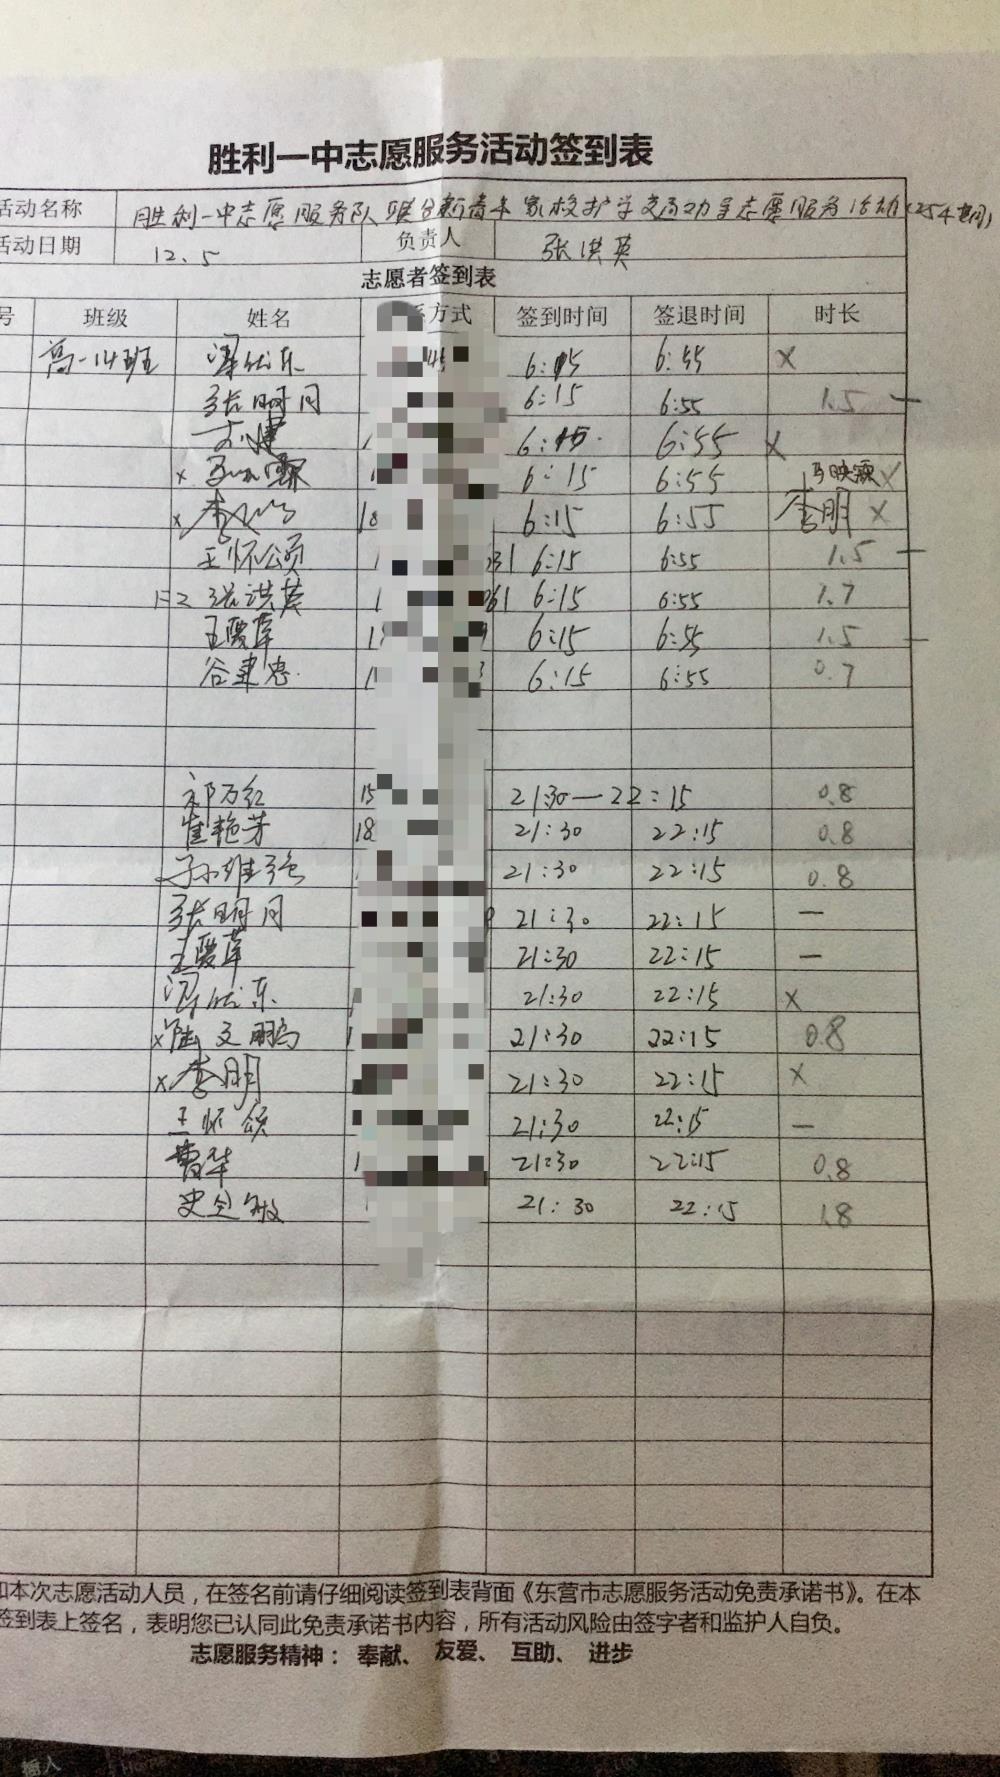 胜利一中志愿服务活动签到表
活动名称 胜利一中志愿服务队联合新青年家校护学交通劝导志愿服务活动
活动日期 12.5 负责人 张洪英
志愿者签到表
号 班级 姓名 方式 签到时间 签退时间 时长
高一14班 6:15 6:55 X
张明月 6:15 6:55 1.5 —
6:15 6:55 X
x 6:15 6:55 马映颖 X
x 18 6:15 6:55 李明 X
王怀颂 1 31 6:15 6:55 1.5 —
张洪英 1 61 6:15 6:55 1.7
王爱萍 1 6:15 6:55 1.5 —
谷建忠 1 3 6:15 6:55 0.7
祁万红 15 21:30—22:15 0.8
崔艳芳 18 21:30 22:15 0.8
孙维强 21:30 22:15 0.8
张明月 21:30 22:15 —
王爱萍 21:30 22:15 —
21:30 22:15 X
x陆文鹏 1 21:30 22:15 0.8
x李明 21:30 22:15 X
王怀颂 21:30 22:15 —
曹华 1 21:30 22:15 0.8
史全敏 21:30 22:15 1.8
加本次志愿活动人员，在签名前请仔细阅读签到表背面《东营市志愿服务活动免责承诺书》。在本
签到表上签名，表明您已认同此免责承诺书内容，所有活动风险由签字者和监护人自负。
志愿服务精神： 奉献、 友爱、 互助、 进步
插入